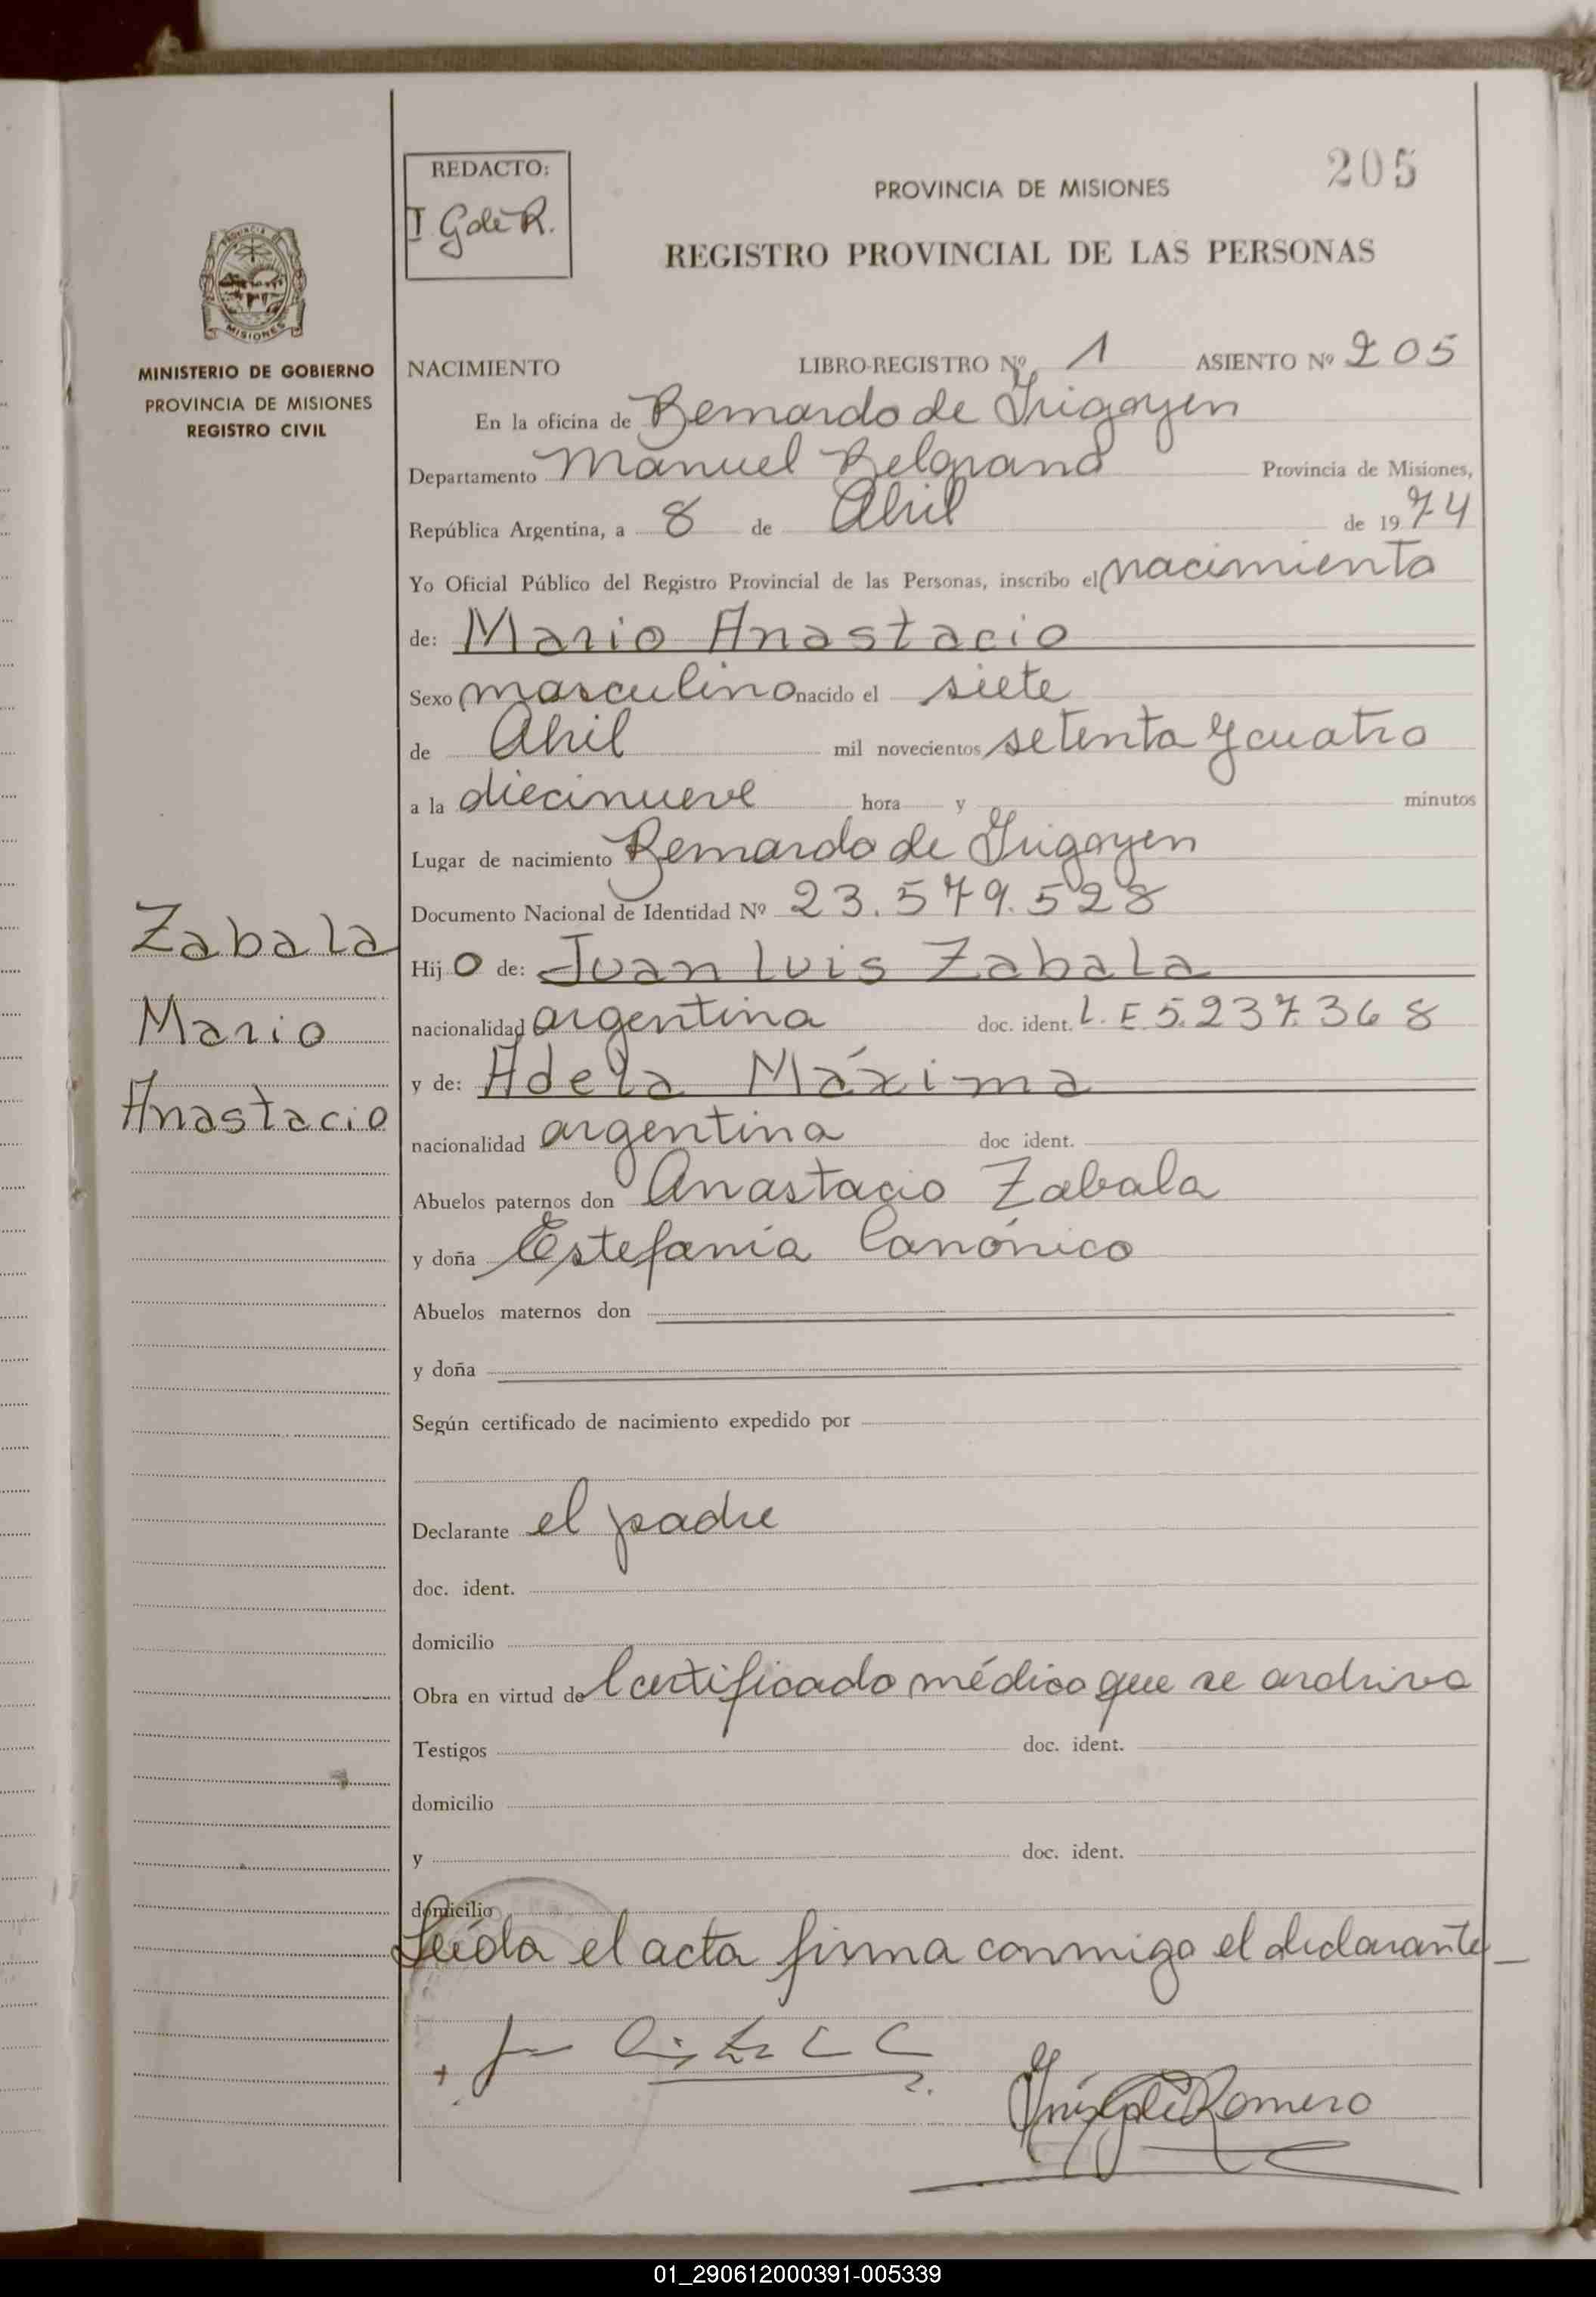 REDACTO:
I. G de R.
205
PROVINCIA DE MISIONES
REGISTRO PROVINCIAL DE LAS PERSONAS
PROVINCIA DE
MISIONES
MINISTERIO DE GOBIERNO
PROVINCIA DE MISIONES
REGISTRO CIVIL
NACIMIENTO LIBRO-REGISTRO Nº 1 ASIENTO Nº 205
En la oficina de Bernardo de Irigoyen
Departamento Manuel Belgrano Provincia de Misiones,
República Argentina, a 8 de Abril de 1974
Yo Oficial Público del Registro Provincial de las Personas, inscribo el nacimiento
de: Mario Anastacio
Sexo masculino nacido el siete
de Abril mil novecientos setenta y cuatro
a la diecinueve hora y minutos
Lugar de nacimiento Bernardo de Irigoyen
Documento Nacional de Identidad Nº 23.579.528
Zabala
Mario
Anastacio
Hijo de: Juan Luis Zabala
nacionalidad argentina doc. ident. L.E 5.237.368
y de: Adela Máxima
nacionalidad argentina doc ident.
Abuelos paternos don Anastacio Zabala
y doña Estefanía Canónico
Abuelos maternos don
y doña
Según certificado de nacimiento expedido por
Declarante el padre
doc. ident.
domicilio
Obra en virtud de Certificado médico que se archiva
Testigos doc. ident.
domicilio
y doc. ident.
domicilio
Leída el acta firma conmigo el declarante
Romero
01_290612000391-005339